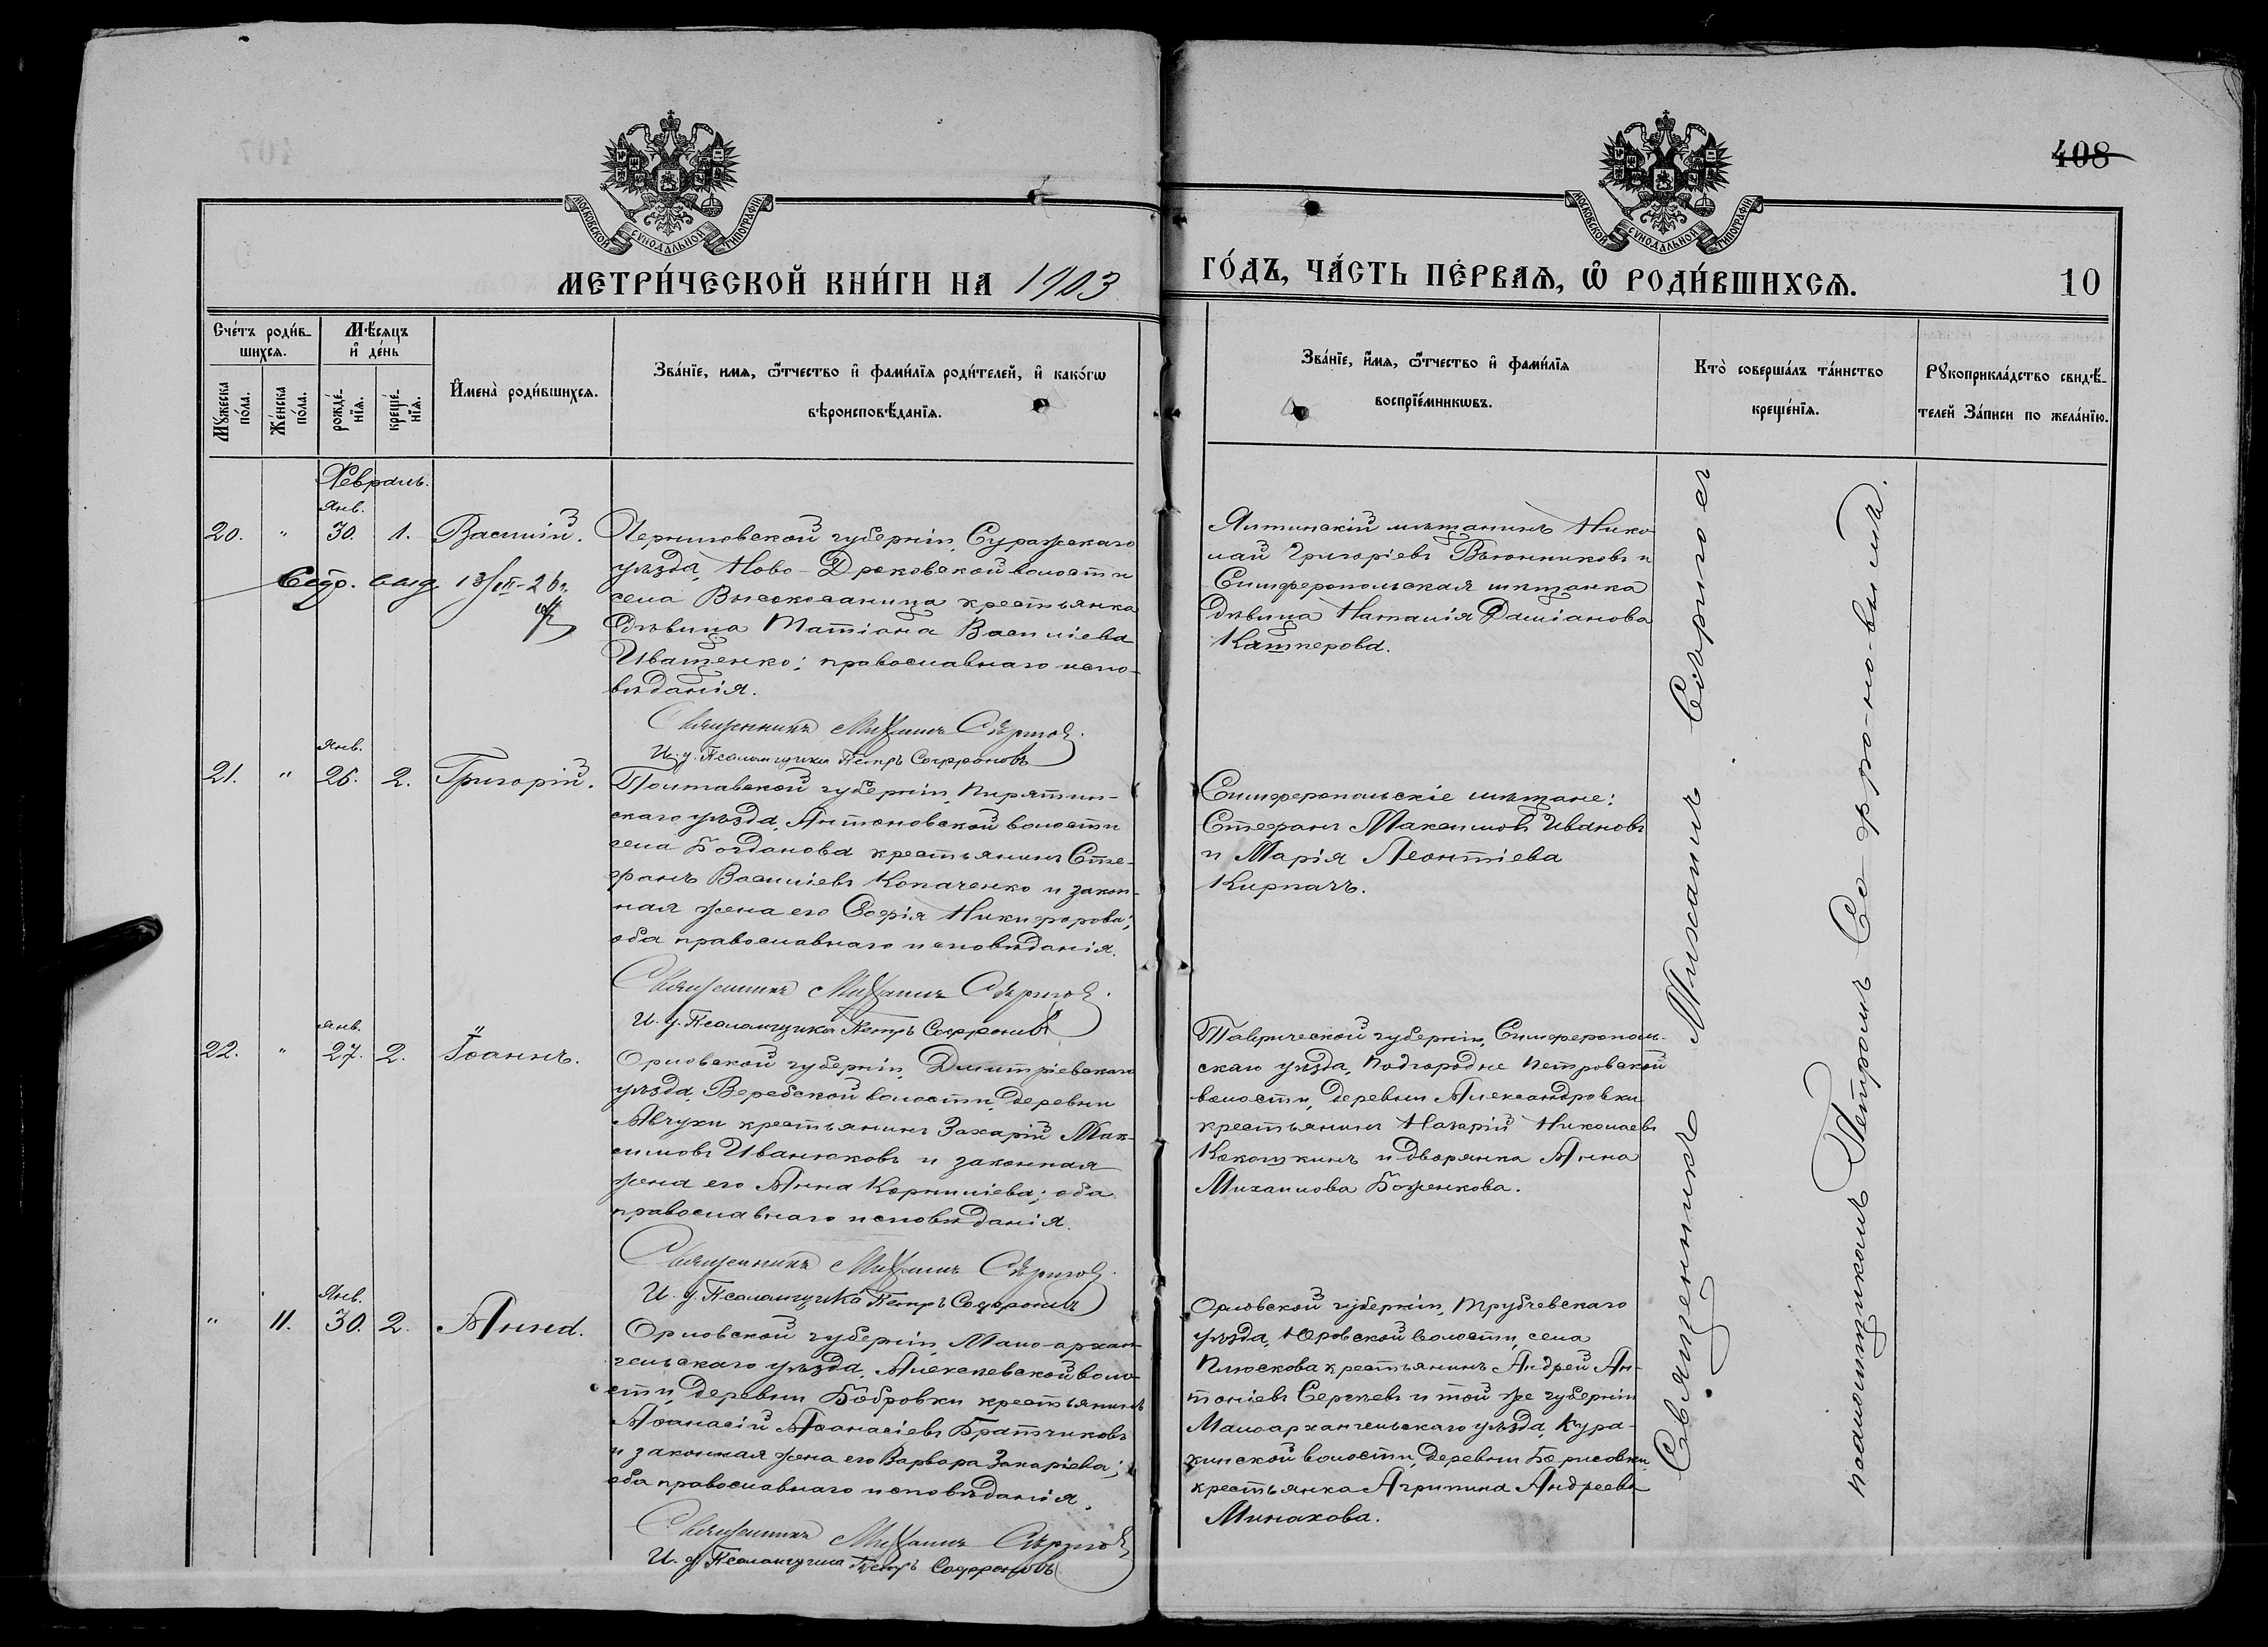 408
МОСКОВСКОЙ СѴНОДАЛЬНОЙ ТИПОГРАФІИ
МОСКОВСКОЙ СѴНОДАЛЬНОЙ ТИПОГРАФІИ
МЕТРИ́ЧЕСКОЙ КНИ́ГИ НА 1903
ГО́ДЪ, ЧА́СТЬ ПЕ́РВАѦ, Ѡ҆ РОДИ́ВШИХСѦ.
10
Сче́тъ роди́в-
шихсѧ.
Мѣ́сѧцъ
и҆ де́нь
Мꙋ́жеска
по́ла.
Же́нска
по́ла.
рожде́-
нїѧ.
креще́-
нїѧ.
И҆мена̀ роди́вшихсѧ.
Зва́нїе, имѧ, ѻ҆́тчество и҆ фами́лїѧ роди́телей, и҆ како́гѡ
вѣроисповѣ́данїѧ.
Зва́нїе, и҆́мѧ, ѻ҆́тчество и҆ фами́лїѧ
воспрїе́мникѡвъ.
Кто̀ соверша́лъ та́инство
креще́нїѧ.
Рꙋкоприкла́дство свидѣ́-
телей За́писи по жела́нїю.
Февраль.
Янв.
20. " 30. 1. Василій.
Черниговской губерніи, Суражскаго
уѣзда, Ново-Дроковской волости
села Высокоселища крестьянка
дѣвица Татіана Василіева
Иващенко; православнаго испо-
вѣданія.
Священникъ Михаилъ Сѣрисов
И. д. Псаломщика Петръ Софроновъ
Ялтинскій мѣщанинъ Нико
лай Григоріевъ Вьюнниковъ и
Симферопольская мѣщанка
дѣвица Наталія Даміанова
Кашперова.
Янв.
21. " 26. 2. Григорій.
Полтавской губерніи, Пирятин-
скаго уѣзда, Антоновской волости
села Богданова крестьянинъ Сте-
фанъ Василіевъ Копаченко и закон-
ная жена его Софія Никифорова;
оба православнаго исповѣданія.
Священникъ Михаилъ Сѣрисов
И. д. Псаломщика Петръ Софроновъ
Симферопольскіе мѣщане:
Стефанъ Максимовъ Ивановъ
и Марія Леонтіева
Кирпачъ.
Янв.
22. " 27. 2. Іоаннъ.
Орловской губерніи, Дмитріевскаго
уѣзда, Веребской волости, деревни
Авчухи крестьянинъ Захарій Мак-
симовъ Иванюковъ и законная
жена его Анна Корнилиева; оба
православнаго исповѣданія.
Священникъ Михаилъ Сѣрисов
И. д. Псаломщика Петръ Софроновъ
Таврической губерніи, Симферополь-
скаго уѣзда, Подгородне Петровской
волости, деревни Александровки
крестьянинъ Назарій Николаевъ
Кокошкинъ и дворянка Анна
Михаилова Боженкова.
Янв.
" 11. 30. 2. Анна.
Орловской губерніи, Мало-архан-
гельскаго уѣзда, Алексѣевской воло-
сти, деревни Бобровки крестьянинъ
Аѳанасій Аѳанасіевъ Братчиковъ
и законная жена его Варвара Захаріева;
оба православнаго исповѣданія.
Священникъ Михаилъ Сѣрисов
И. д. Псаломщика Петръ Софроновъ
Орловской губерніи, Трубчевскаго
уѣзда, Юровской волости, села
Плюскова крестьянинъ Андрей Ан-
тоніевъ Сергѣевъ и той же губерніи
Малоархангельскаго уѣзда, Кура-
кинской волости, деревни Борисовки
крестьянка Агрипина Андреева
Минакова.
Священникъ Михаилъ
псаломщикомъ Петромъ Со-фро-но-вы-мъ.